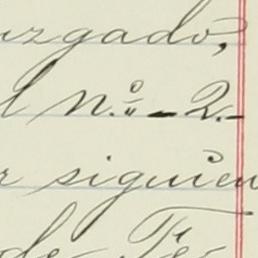 uzgado,
l N.º - 2.-
r siguien
de Fe-